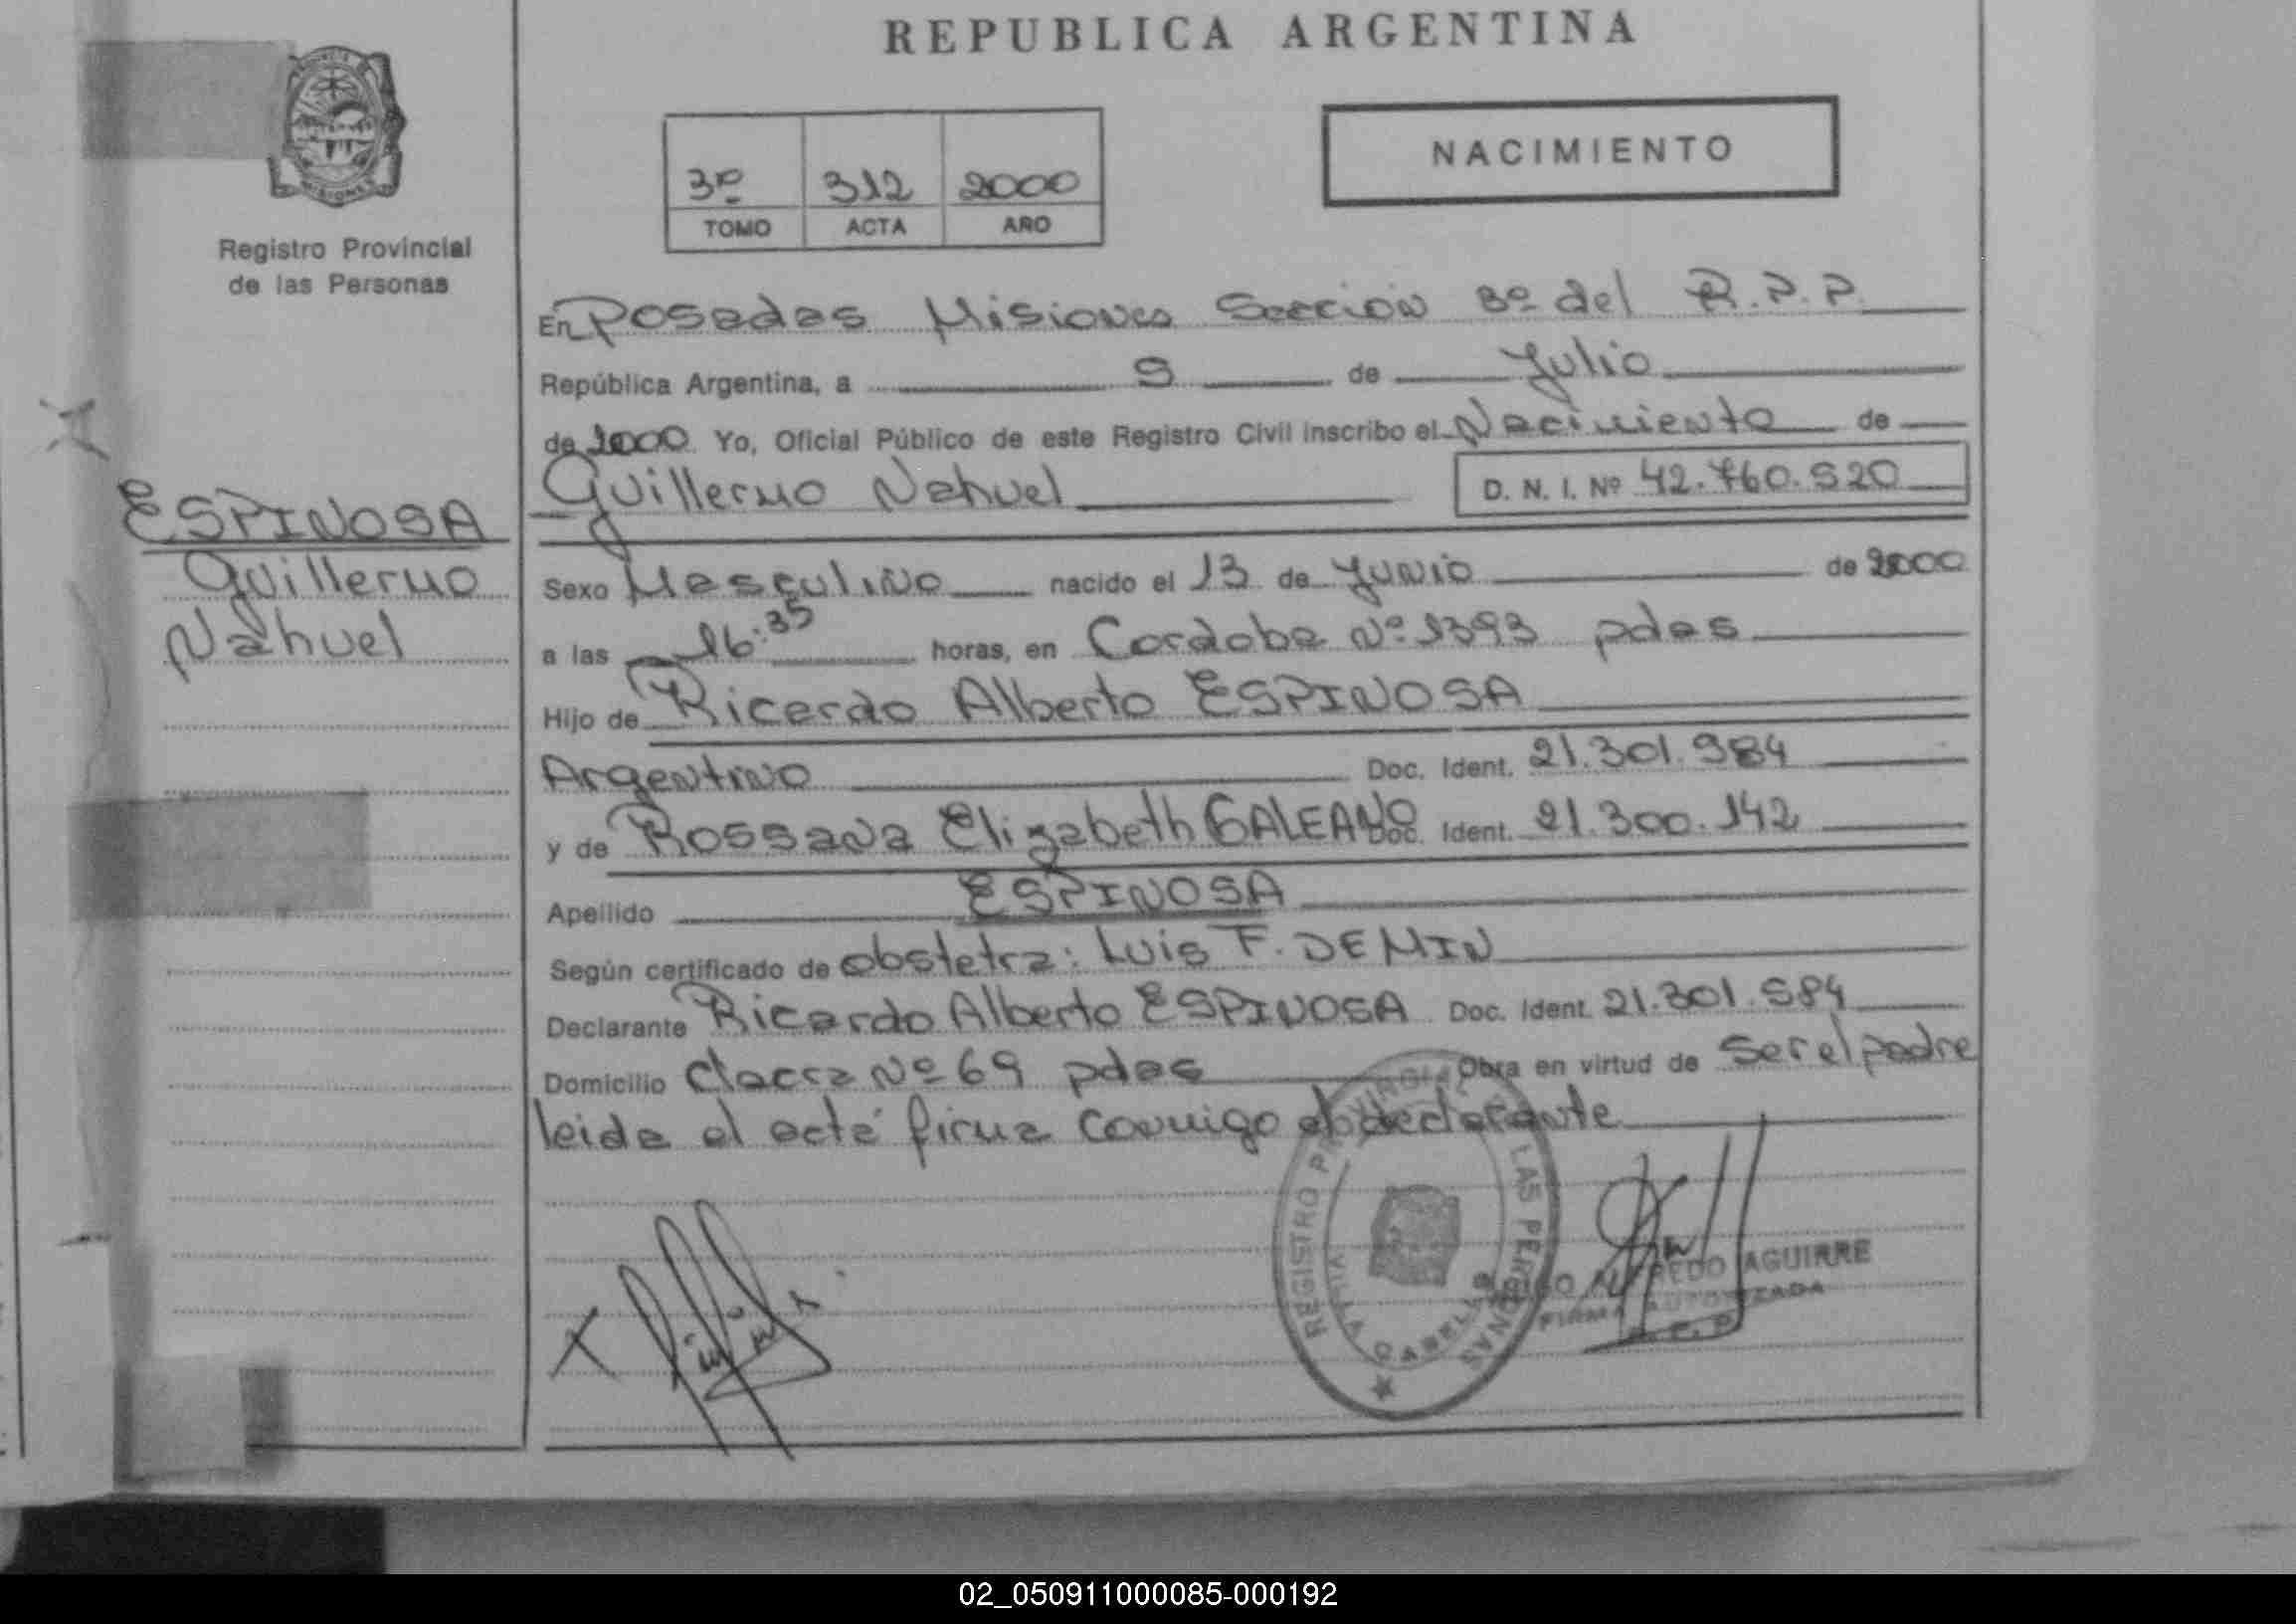 REPUBLICA ARGENTINA
NACIMIENTO
3º 312 2000
TOMO ACTA AÑO
Registro Provincial
de las Personas
En Posadas Misiones Sección 3º del R.P.P.
República Argentina, a de Julio
de 2000 Yo, Oficial Público de este Registro Civil inscribo el Nacimiento de
Guillermo Nahuel D. N. I. Nº 42.760.520
ESPINOSA
Guillermo
Nahuel
Sexo Masculino nacido el 13 de Junio de 2000
a las 16:35 horas, en Cordoba Nº 1393 pdas
Hijo de Ricardo Alberto ESPINOSA
Argentino Doc. Ident. 21.301.984
y de Rossana Elizabeth GALEANO Doc. Ident. 21.300.142
Apellido ESPINOSA
Según certificado de obstetra: Luis F. DEMIN
Declarante Ricardo Alberto ESPINOSA Doc. Ident. 21.301.984
Domicilio Chacra Nº 69 pdas Obra en virtud de ser el padre
leida el acta firma conmigo el declarante
REGISTRO PROVINCIAL LAS PERSONAS
VILLA CABELLO
ALFREDO AGUIRRE
FIRMA AUTORIZADA
02_050911000085-000192